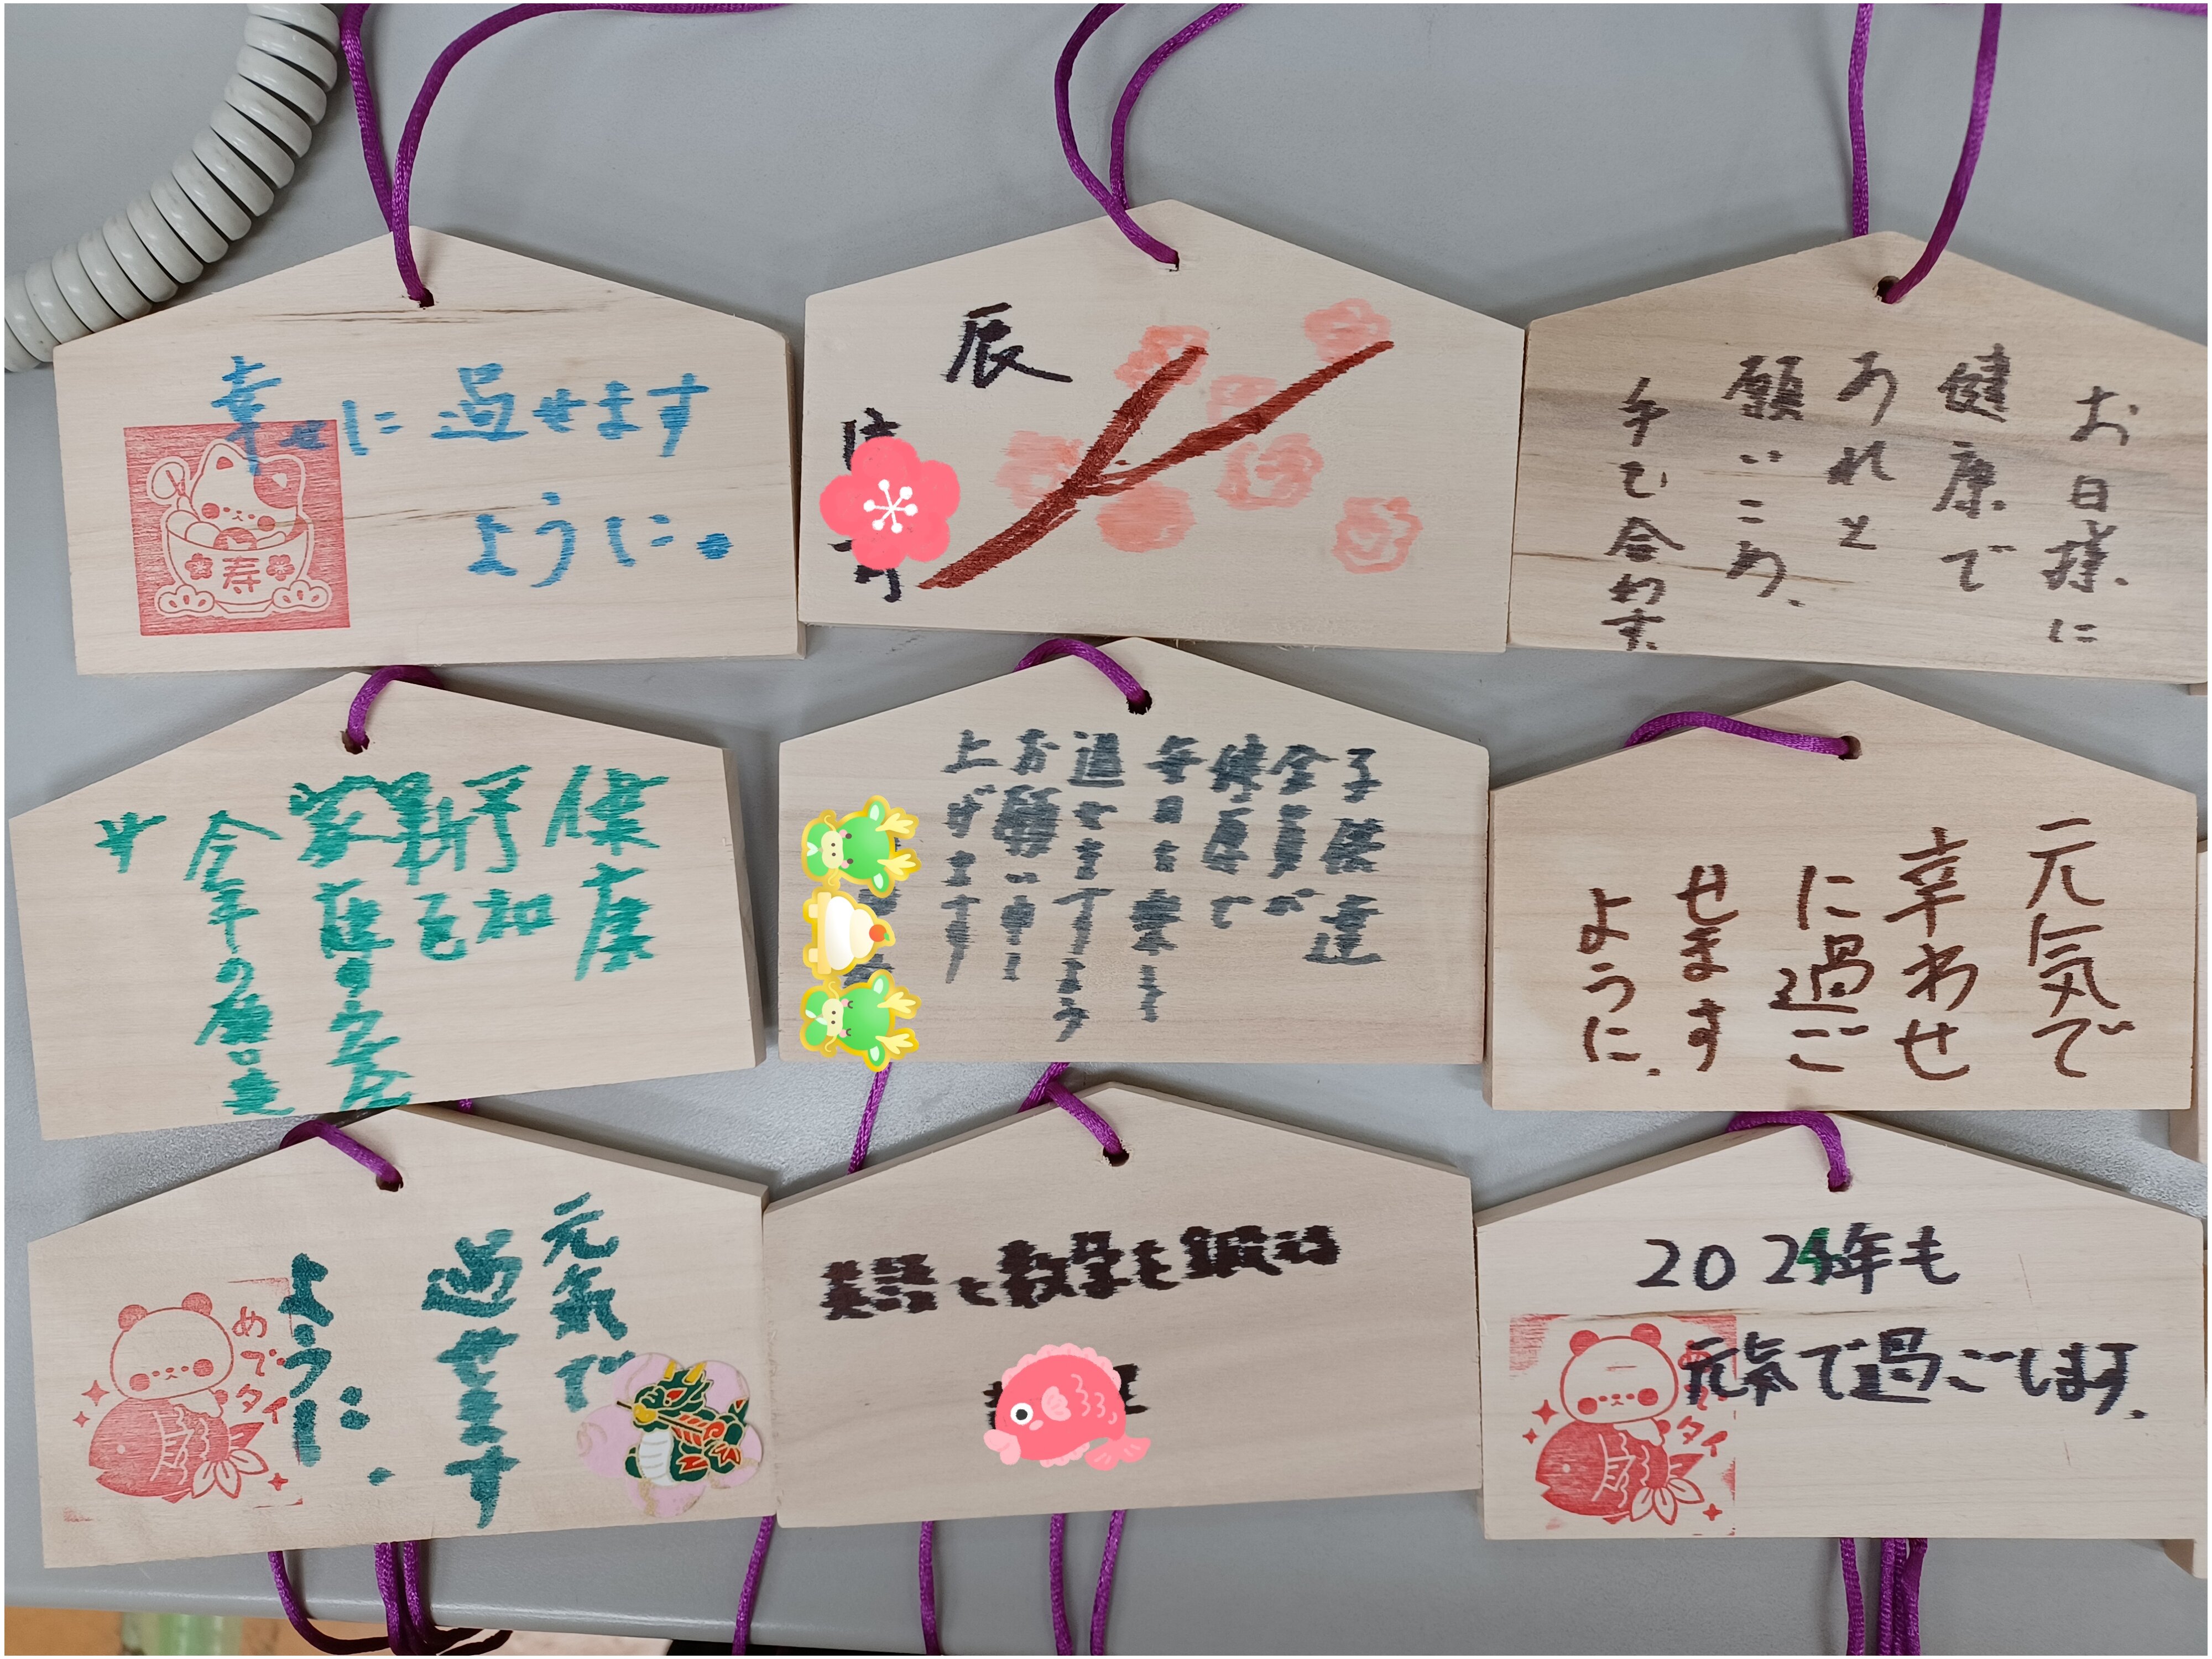 幸せに過せます
ように。
寿
辰
お日様に
健康で
あれと
願いこめ、
手を合わす。
健康
平和
今年の
子供達
全員が
健康で
毎日を楽し
過せますよう
お願い申し
上げます
元気で
幸わせ
に過ご
せます
ように.
元気で
過せます
ように。
めで
タイ
英語と数学を鍛える
2024年も
元気で過ごします.
タイ